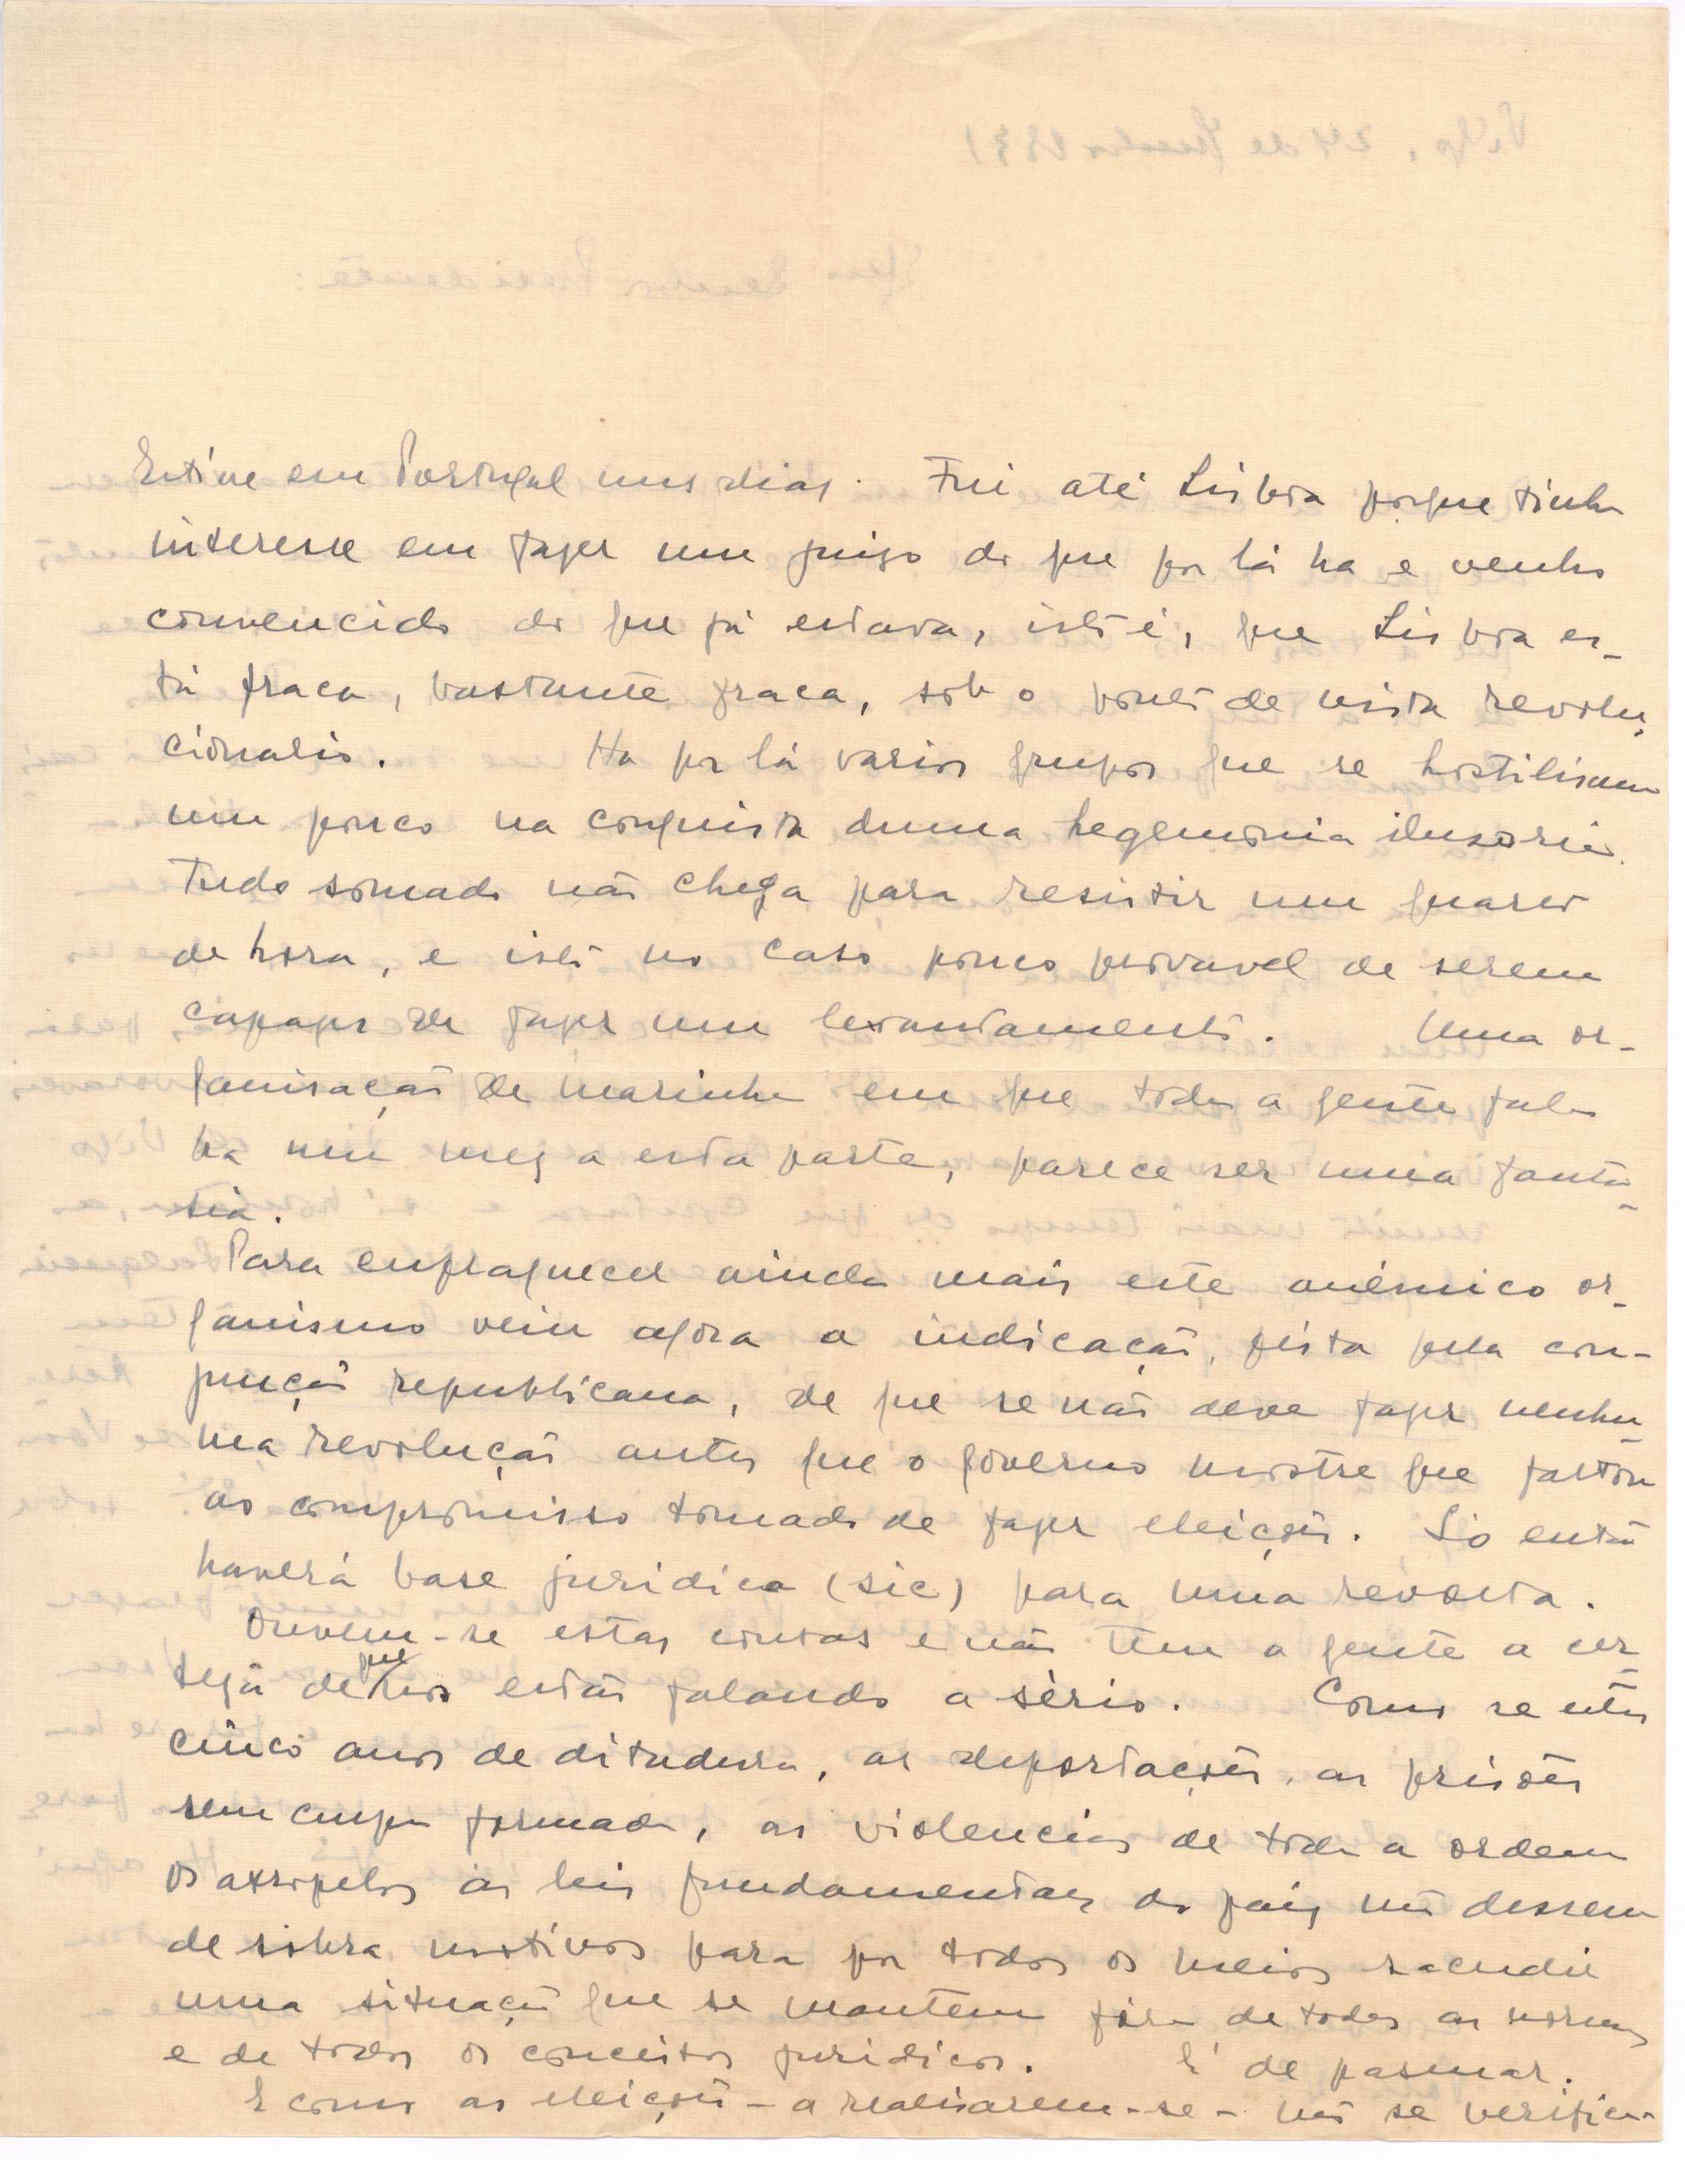 Estive em Portugal uns dias. Fui até Lisboa porque tinha
interesse em fazer um juizo do que por lá ha e venho
convencido do que já estava, isto é, que Lisboa es-
tá fraca, bastante fraca, sob o ponto de vista revolu-
cionario. Ha por lá varios grupos que se hostilisam
um pouco na conquista duma hegemonia ilusoria.
Tudo somado não chega para resistir um quarto
de hora, e isto no caso pouco provavel de serem
capazes de fazer um levantamento. Uma or-
ganisação de marinha em que toda a gente fala
ha um mez a esta parte, parece ser uma fanta-
sia.
Para enfraquecer ainda mais este anémico or-
ganismo vem agora a indicação, feita pela con-
junção republicana, de que se não deve fazer nenhu-
ma revolução antes que o governo mostre que faltou
ao compromisso tomado de fazer eleições. Só então
haverá base juridica (sic) para uma revolta.
Ouvem-se estas cousas e não tem a gente a cer
teza de que nos estão falando a sério. Como se estes
cinco anos de ditadura, as deportações, as prisões
sem culpa formada, as violencias de toda a ordem
os atropelos ás leis fundamentaes do paiz não dessem
de sobra motivos para por todos os meios sacudir
uma situação que se mantem fóra de todas as normas
e de todos os conceitos juridicos. É de pasmar.
E como as eleições - a realisarem-se - não se verifica-